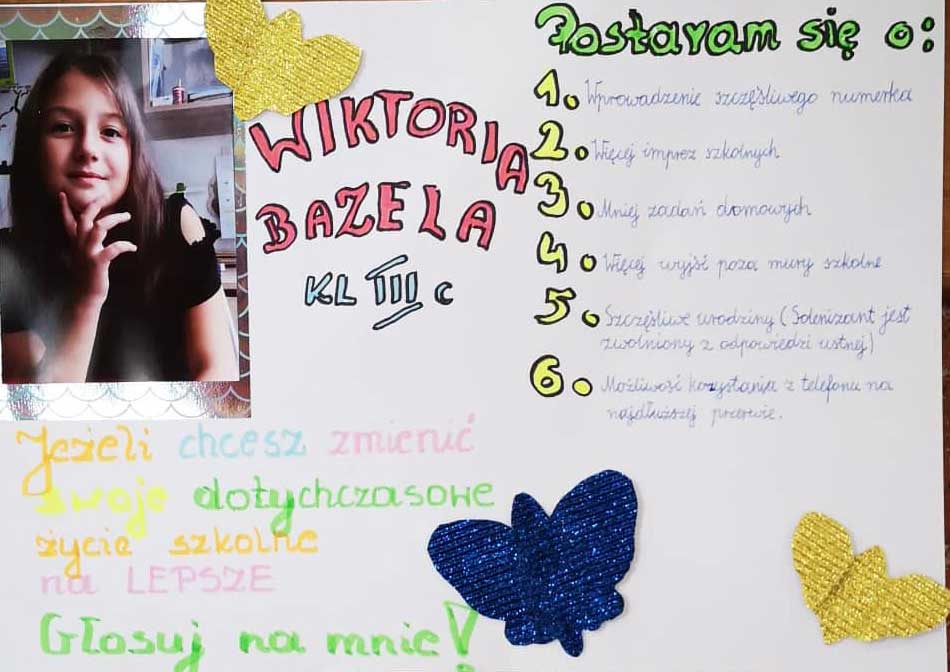 WIKTORIA
BAZELA
KL III c
Postaram się o:
1. Wprowadzenie szczęśliwego numerka
2. Więcej imprez szkolnych
3. Mniej zadań domowych
4. Więcej wyjść poza mury szkolne
5. Szczęśliwe urodziny (Solenizant jest
zwolniony z odpowiedzi ustnej)
6. Możliwość kozystania z telefonu na
najdłuższej przerwie.
Jeżeli chcesz zmienić
swoje dotychczasowe
życie szkolne
na LEPSZE
Głosuj na mnie!